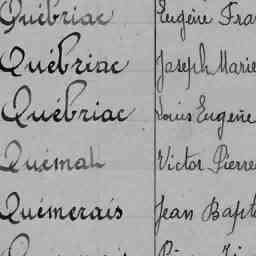 Québriac Eugène Fra
Québriac Joseph Marie
Québriac Louis Eugène
Quémal Victor Pierre
Quémerais Jean Bapt